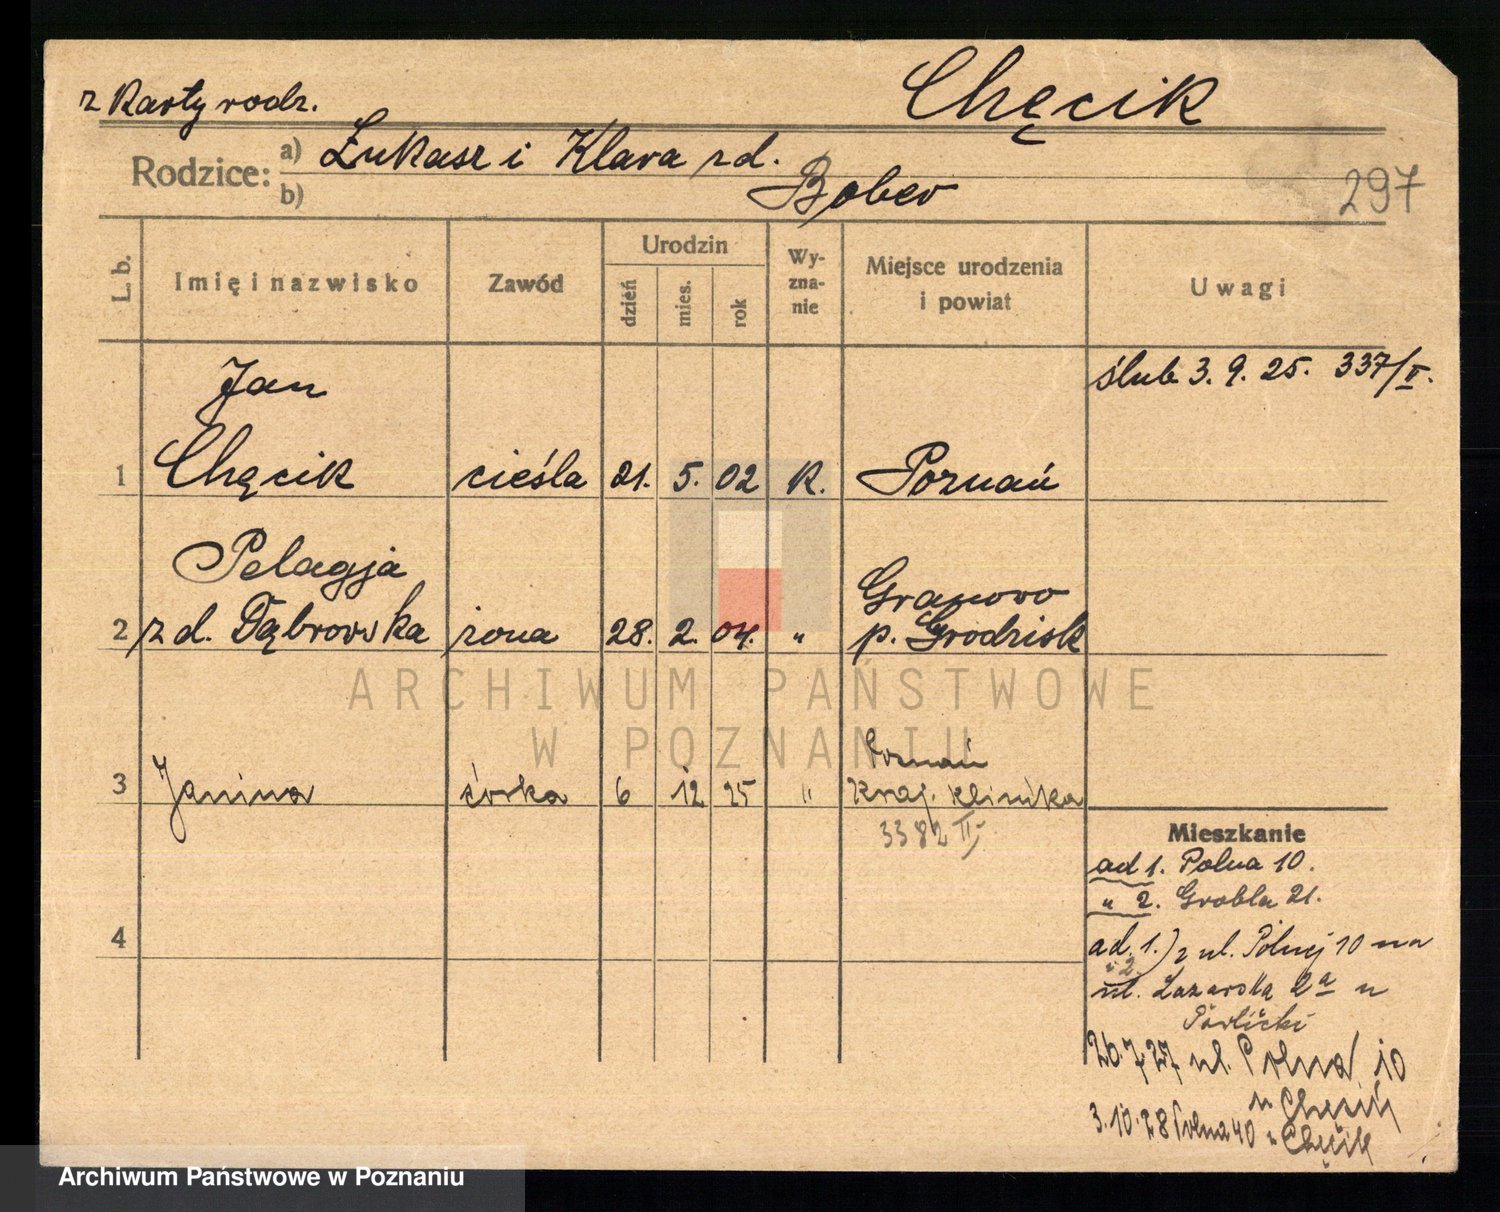 z Karty rodz.
Chęcik
Rodzice:
a) Łukasz i Klara z d.
b) Bober
297
L. b.
Imię i nazwisko
Zawód
Urodzin
dzień
mies.
rok
Wy-
zna-
nie
Miejsce urodzenia
i powiat
Uwagi
Jan
ślub 3. 9. 25. 337/II.
1 Chęcik cieśla 21. 5. 02 R. Poznań
Pelagja
Granowo
2 z d. Dąbrowska żona 28. 2. 04. " p. Grodzisk
ARCHIWUM PAŃSTWOWE
W POZNANIU
Poznań
3 Janina córka 6 12 25 " Kraj. Klinika
3382 II
Mieszkanie
ad 1. Polna 10.
" 2. Grobla 21.
4
ad. 1.) z ul. Polnej 10 na
" 2
ul. Łazarską 2a u
26.7.27 ul. Polna 10
u Chęcik
3.10.28 Polna 40 u Chęcik
Archiwum Państwowe w Poznaniu